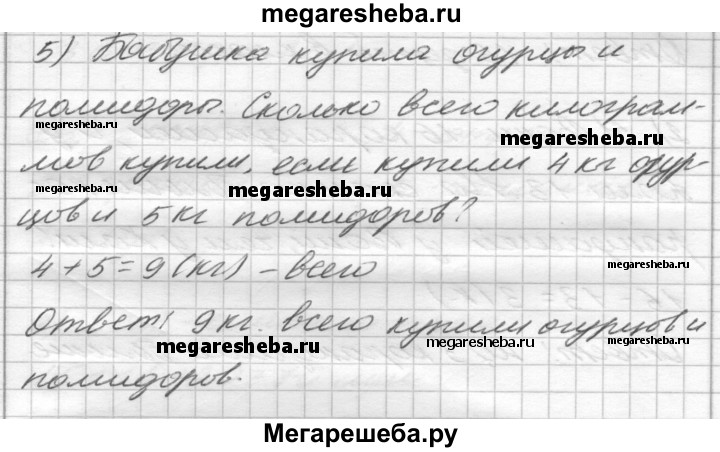 megaresheba.ru
5) Бабушка купила огурцы и
помидоры. Сколько всего килограм-
megaresheba.ru
megaresheba.ru
мов купили, если купили 4 кг огур-
megaresheba.ru
megaresheba.ru
цов и 5 кг помидоров?
4 + 5 = 9 (кг) – всего
megaresheba.ru
Ответ: 9 кг. всего купили огурцов и
megaresheba.ru
megaresheba.ru
megaresheba.ru
помидоров.
Мегарешеба.ру